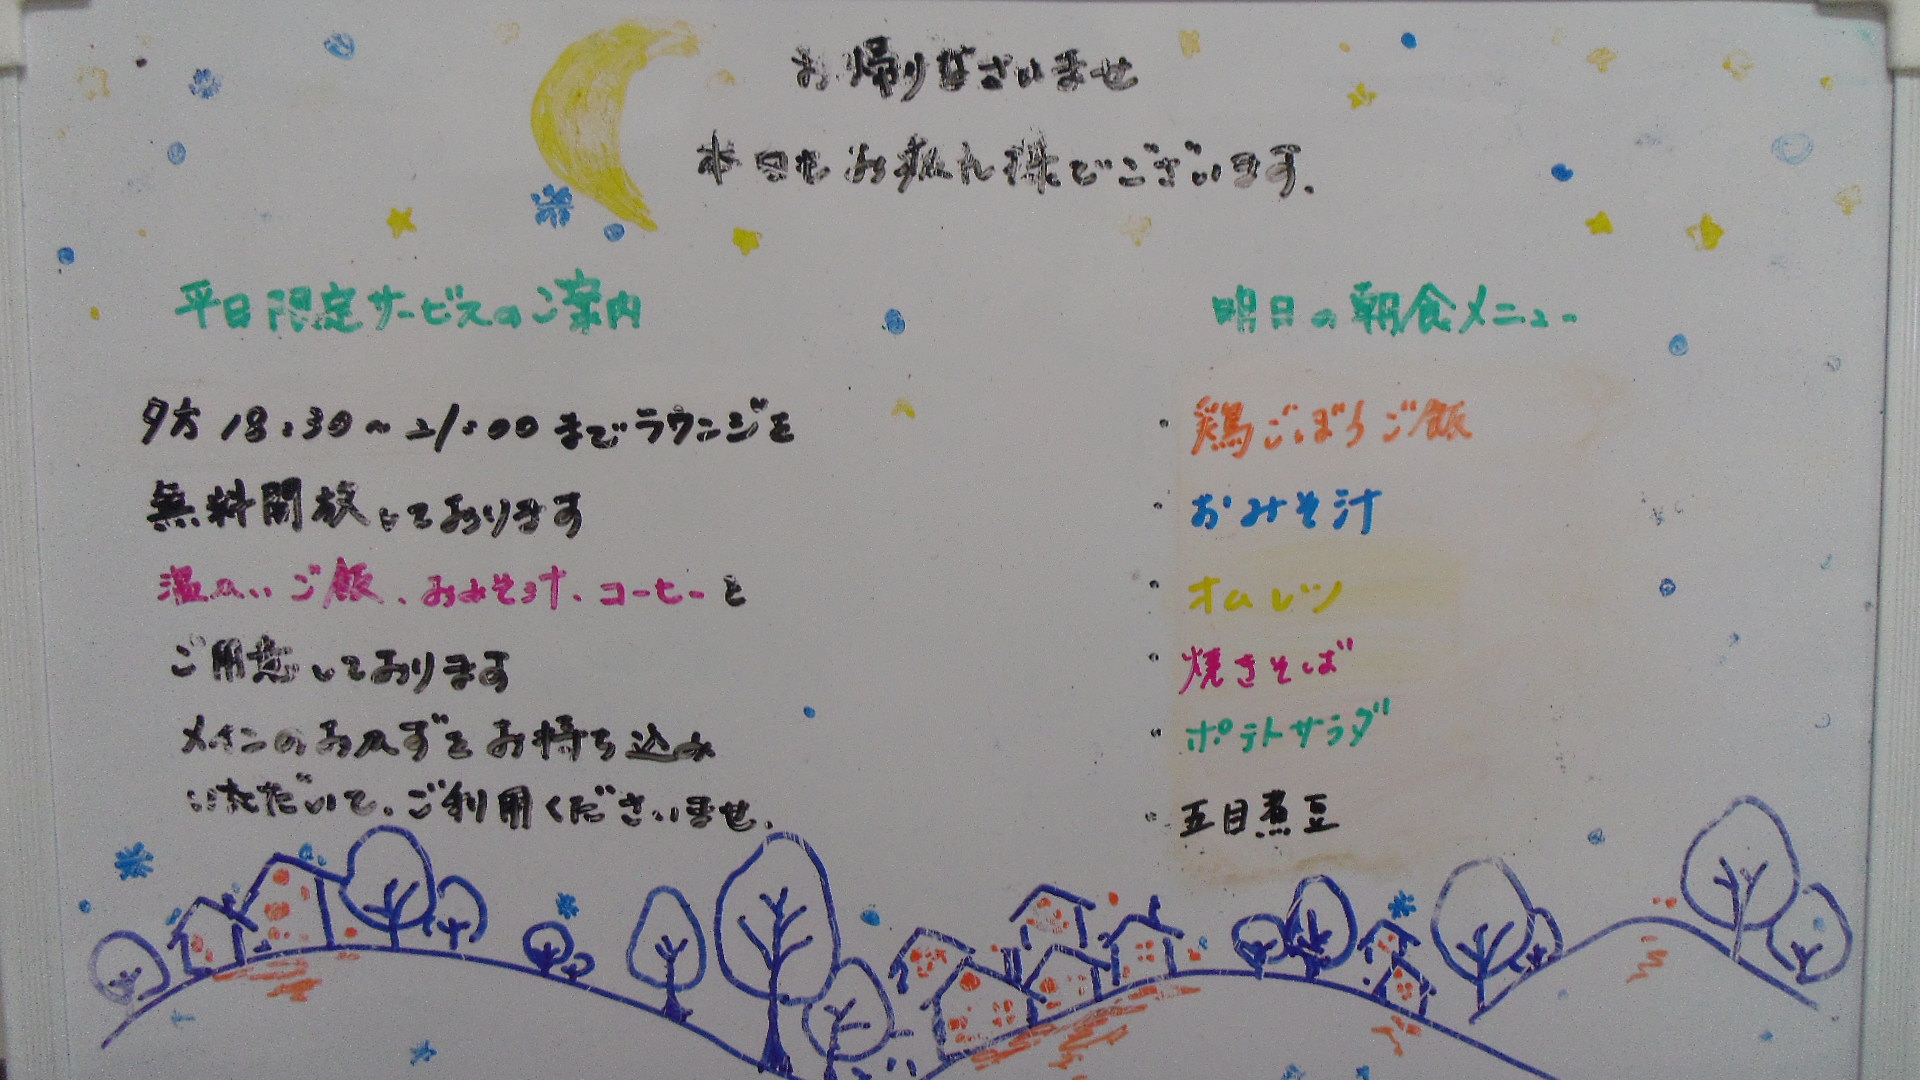 お帰りなさいませ
本日もお疲れ様でございます.
平日限定サービスのご案内
夕方 18:30~21:00 までラウンジを
無料開放しております
温かいご飯、おみそ汁、コーヒーを
ご用意しております
メインのおかずをお持ち込み
いただいて、ご利用くださいませ.
明日の朝食メニュー
・鶏ごぼうご飯
・おみそ汁
・オムレツ
・焼きそば
・ポテトサラダ
・五目煮豆